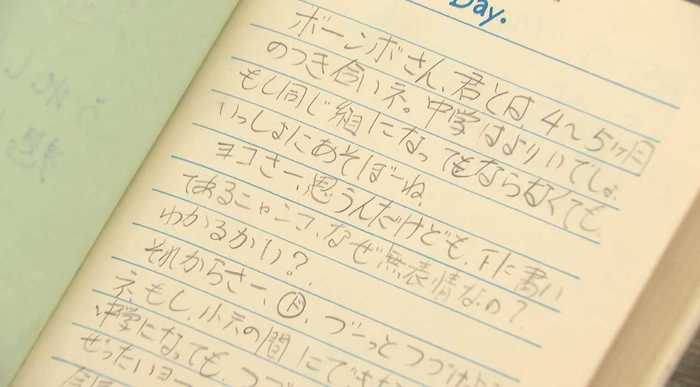 Day.
ボーンボさん、君とは、4〜5ヶ月
のつき合いネ。中学はよりいでしょ
もし同じ組になってもならなくても、
いっしょにあそぼーね、
ヨコさー、思うんだけども、下に書い
てあるニャンコ、なぜ無表情なの？
わかるかい？
それからさー、ド、ズーっとつづけよ
ネ、もし、小6の間にできな
中学になっても、つづ
ぜったいヨー